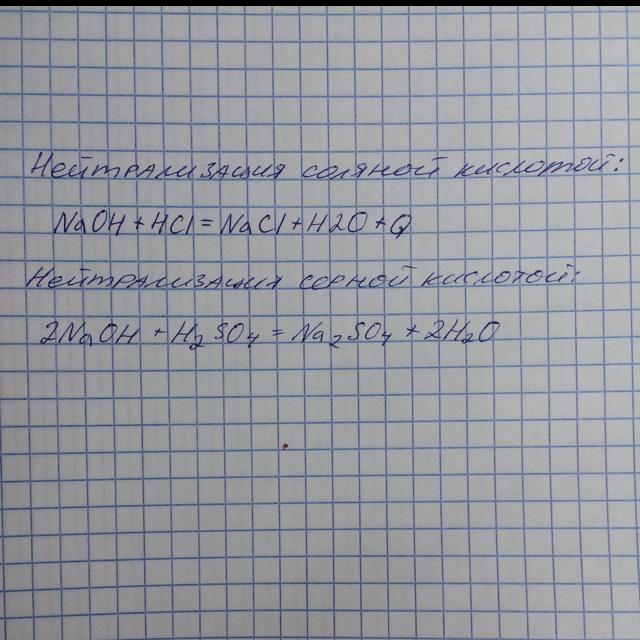 Нейтрализация соляной кислотой:
NaOH + HCl = NaCl + H2O + Q
Нейтрализация серной кислотой:
2NaOH + H₂SO₄ = Na₂SO₄ + 2H₂O